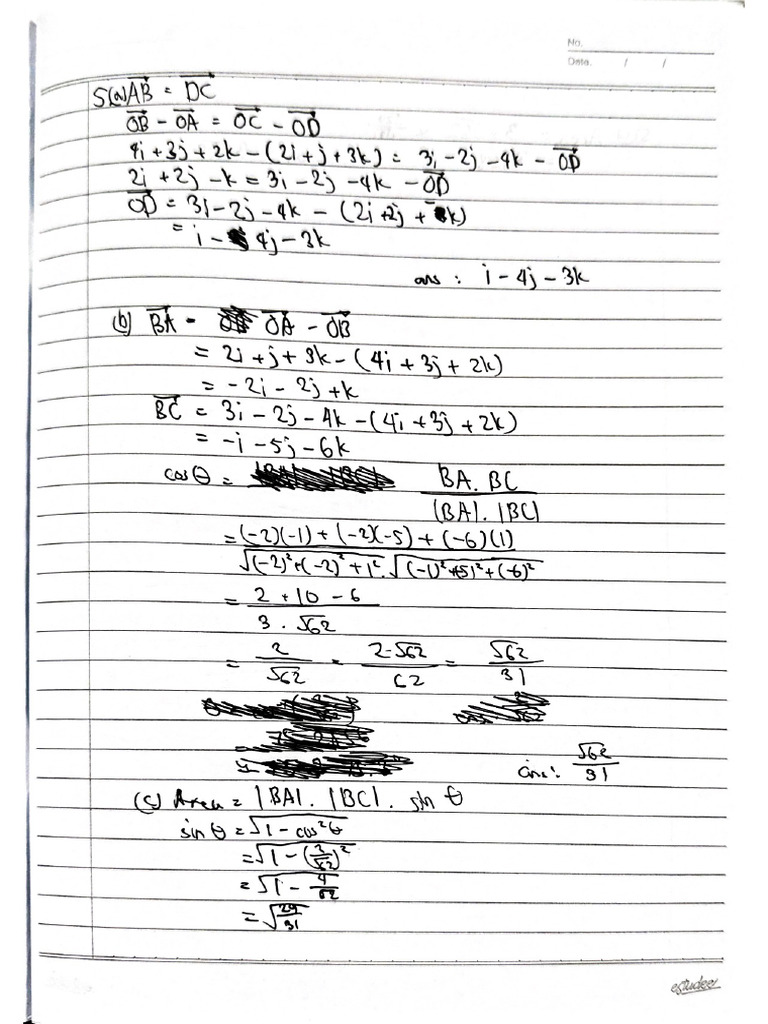 No.
Date. / /
5(a) AB = DC
OB - OA = OC - OD
4i + 3j + 2k - (2i + j + 3k) = 3i - 2j - 4k - OD
2i + 2j - k = 3i - 2j - 4k - OD
OD = 3i - 2j - 4k - (2i + 2j + -k)
= i - 4j - 3k
ans : i - 4j - 3k
(b) BA = OA - OB
= 2i + j + 3k - (4i + 3j + 2k)
= -2i - 2j + k
BC = 3i - 2j - 4k - (4i + 3j + 2k)
= -i - 5j - 6k
cos θ = BA . BC / |BA| . |BC|
= (-2)(-1) + (-2)(-5) + (-6)(1) / √(-2)² + (-2)² + 1² . √(-1)² + (5)² + (-6)²
= 2 + 10 - 6 / 3 . √62
= 2/√62 = 2√62/62 = √62/31
ans: √62/31
(c) Area = |BA| . |BC| . sin θ
sin θ = √1 - cos²θ
= √1 - (2/√62)²
= √1 - 4/62
= √29/31
estudee